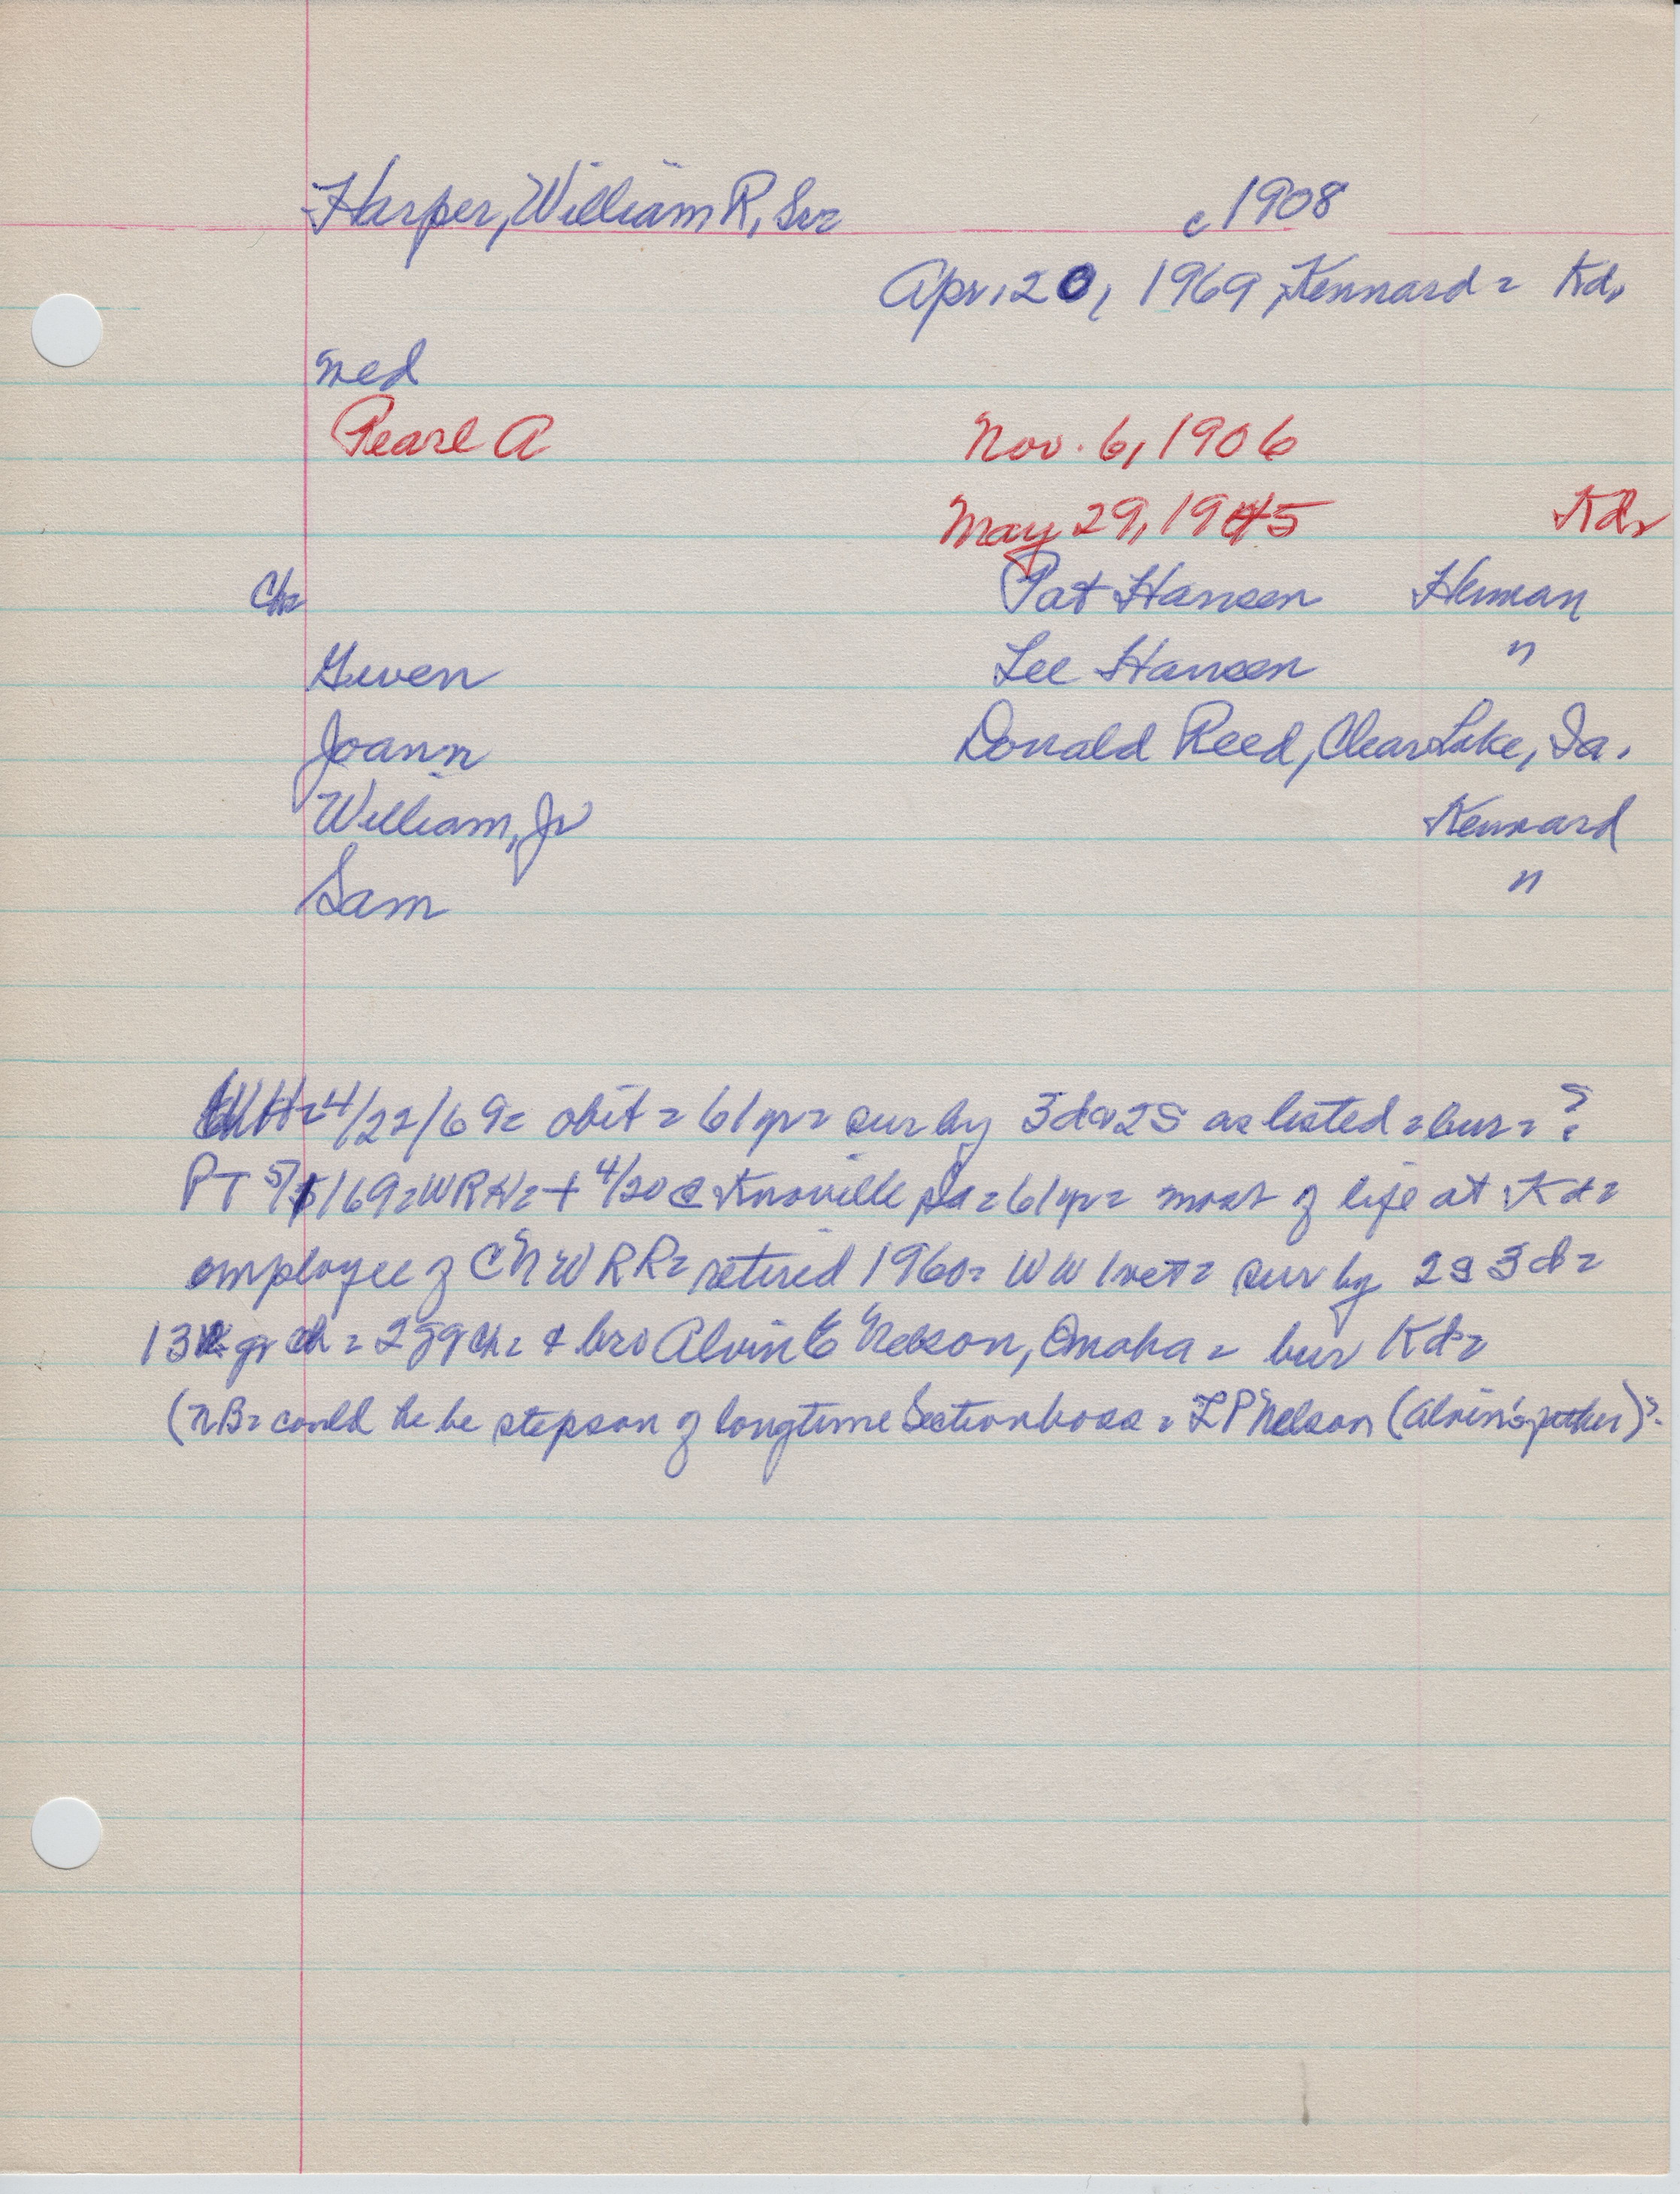 Harper, William R, Sr= c1908
Apr. 20, 1969, Kennard = Kd.
med
Pearl A Nov. 6, 1906
May 29, 1945 Kd=
Ch= Pat Hansen Herman
Gwen Lee Hansen "
Joann Donald Reed, Clear Lake, Ia.
William, Jr Kennard
Sam "
WH= 4/22/69= obit = 61yr= sur by 3d & 2S as listed = bur = ?
PT 5/1/69= WRH= + 4/20 @ Knoxville Ia = 61yr= most of life at Kd=
employee of CNW RR= retired 1960= WW 1 vet= sur by 2s 3d=
13 gr ch = 2 ggch= & bro Alvin E Nelson, Omaha = bur Kd=
(NB= could he be stepson of longtime Section boss = L P Nelson (Alvin's father)?